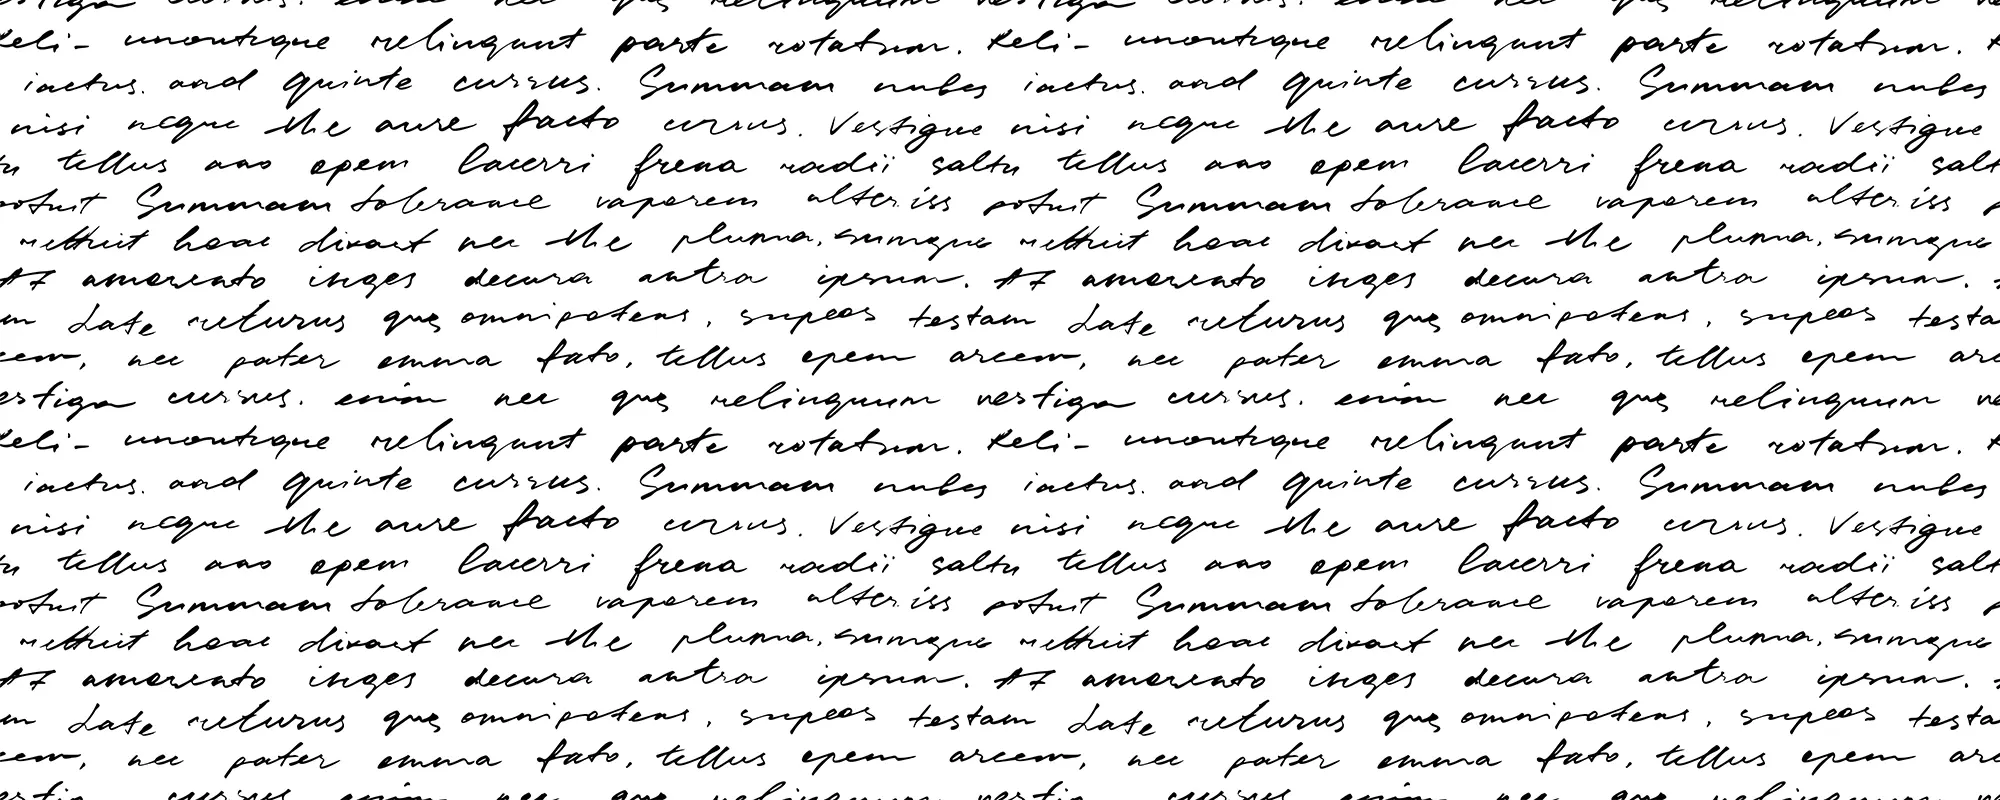 vestiga cursus. enim nec ques relinquum vestiga cursus. enim nec ques relinquum
Keli- unontique relinqunt parte rotatum. Keli- unontique relinqunt parte rotatum.
iactus. and quinte cursus. Summam nubes iactus. and quinte cursus. Summam nubes
nisi neque the aure facto cursus. Vestigue nisi neque the aure facto cursus. Vestigue
tellus ano opem lacerri frena radii saltu tellus ano opem lacerri frena radii salt
potuit Summam tolerance vaporem alter iss potuit Summam tolerance vaporem alter iss
haec nec the pluma, sumque haec nec the pluma, sumque
AZ amorento inges decura antra ipsum. AZ amorento inges decura antra ipsum.
Late returus ques omnipotens, supeos testam Late returus ques omnipotens, supeos testa
nec pater emma fato, tellus opem arcem, nec pater emma fato, tellus opem arc
estiga cursus. enim nec ques relinquum vestiga cursus. enim nec ques relinquum
Keli- unontique relinqunt parte rotatum. Keli- unontique relinqunt parte rotatum.
iactus. and quinte cursus. Summam nubes iactus. and quinte cursus. Summam nubes
nisi neque the aure facto cursus. Vestigue nisi neque the aure facto cursus. Vestigue
tellus ano opem lacerri frena radii saltu tellus ano opem lacerri frena radii salt
potuit Summam tolerance vaporem alter iss potuit Summam tolerance vaporem alter iss
haec nec the pluma, sumque haec nec the pluma, sumque
AZ amorento inges decura antra ipsum. AZ amorento inges decura antra ipsum.
Late returus ques omnipotens, supeos testam Late returus ques omnipotens, supeos testa
nec pater emma fato, tellus opem arcem, nec pater emma fato, tellus opem arc